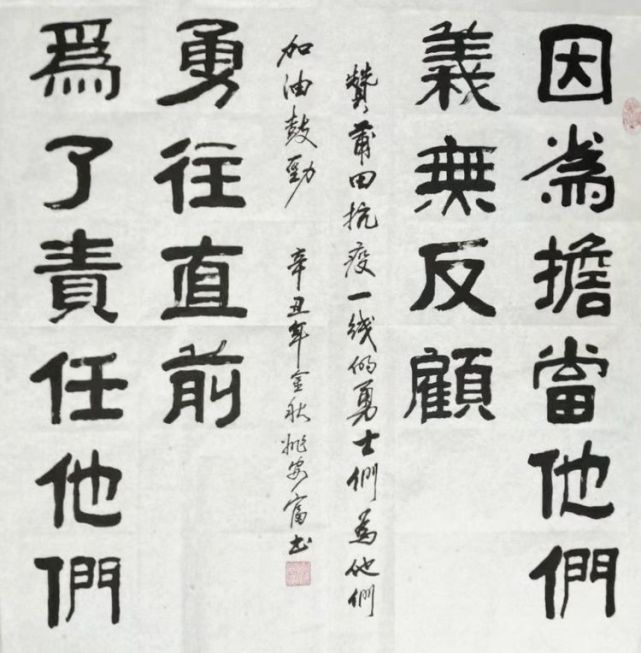 因為擔當他們
義無反顧
爲了責任他們
勇往直前
贊莆田抗疫一线的勇士們為他們
加油鼓勁 辛丑年金秋姚安富书